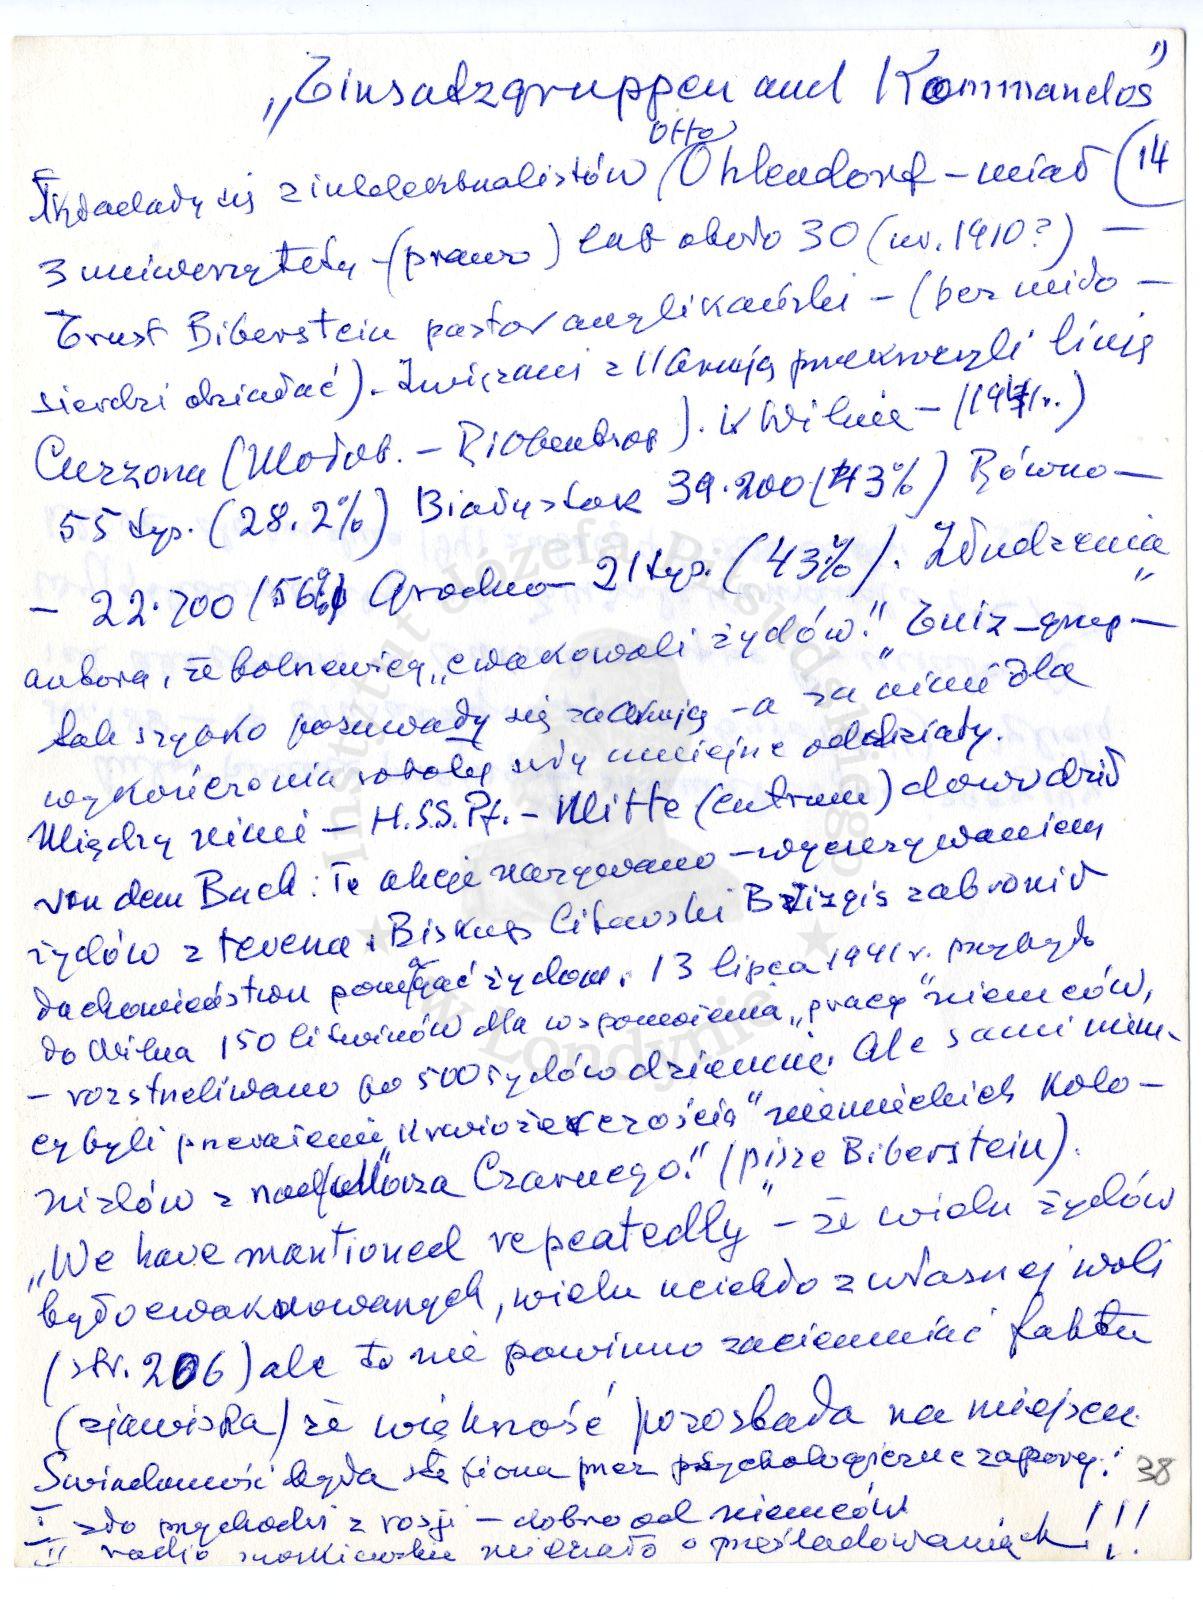 1)
„Einsatzgruppen and Kommandos”
Składały się z intelektualistów Otto Ohlendorf – miał (14
3 uniwersytety – (prawo) lat około 30 (ur. 1910?) –
Ernst Biberstein pastor anglikański – (bez miło–
sierdzi działać). Związani z Armją przekroczyli linię
Curzona (Mołot. – Ribbentrop). W Wilnie – (1941 r.)
55 tys. (28.2%) Białystok 39.200 (43%) Równo –
– 22.700 (56%) Grodno – 21 tys. (43%). Złudzenia
autora, że bolszewicy „ewakowali żydów.” „Einz–grup–”
tak szybko posuwały się za armją – a za nimi dla
wykończenia roboty szły mniejsze oddziały.
Między nimi – H.S.S.Pf. – Mitte (centrum) dowodził
von dem Bach: Te akcje nazywano – wyczerpywaniem
żydów z terena. Biskup Litewski Brizgis zabronił
duchowieństwu pomagać żydom. 13 lipca 1941 r. przybyło
do Wilna 150 litwinów dla wspomożenia „pracy” niemców,
– rozstreliwano po 500 żydów dziennie. Ale sami niem–
cy byli przerażeni „krwiożerczością” niemieckich kolo–
nistów z nad „Morza Czarnego.” (pisze Biberstein).
„We have mantioned repeatedly” – że wielu żydów
było ewakuowanych, wielu uciekło z własnej woli
(str. 206) ale to nie powinno zaciemniać faktu
(zjawiska) że większość pozostała na miejscu
Świadomość była stępiona przez psychologiczne zapory:
38
I zło przychodzi z rosji – dobro od niemców
II radjo moskiewskie milczało o prześladowaniach!!!
Instytut Józefa Piłsudskiego
w Londynie